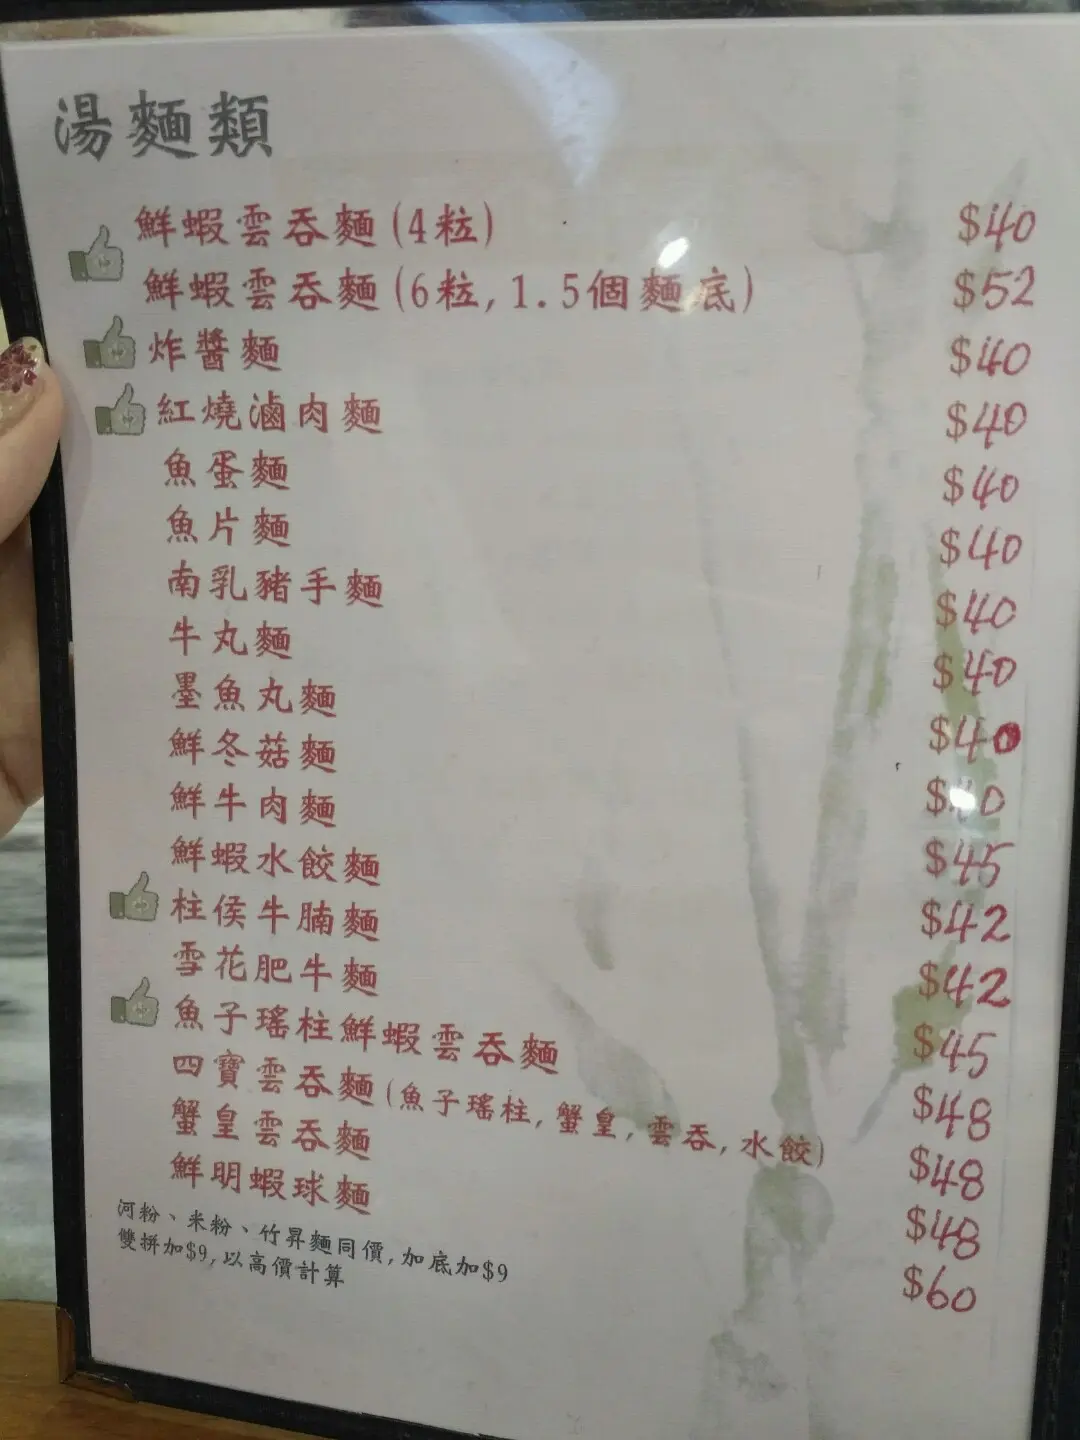 湯麵類
鮮蝦雲吞麵(4粒) $40
鮮蝦雲吞麵(6粒,1.5個麵底) $52
炸醬麵 $40
紅燒滷肉麵 $40
魚蛋麵 $40
魚片麵 $40
南乳豬手麵 $40
牛丸麵 $40
墨魚丸麵 $40
鮮冬菇麵 $40
鮮牛肉麵 $45
鮮蝦水餃麵 $42
柱侯牛腩麵 $42
雪花肥牛麵 $45
魚子瑤柱鮮蝦雲吞麵 $48
四寶雲吞麵(魚子瑤柱,蟹皇,雲吞,水餃) $48
蟹皇雲吞麵 $48
鮮明蝦球麵 $60
河粉、米粉、竹昇麵同價,加底加$9
雙拼加$9,以高價計算